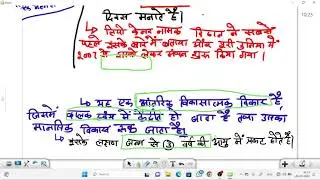 दिवस मनाते हैं।
→ लियो कैनर नामक विद्वान ने सबसे
पहले इसके बारे में बताया और पूरी दुनिया में
2007 से
शुरू किया गया।
→ यह एक आंतरिक विकासात्मक विकार है,
जिसमें बालक स्वयं में केंद्रित हो जाता है तथा उसका
मानसिक विकास रुक जाता है।
इसके लक्षण जन्म से ③ वर्ष की आयु में प्रकट होते हैं।
10:23